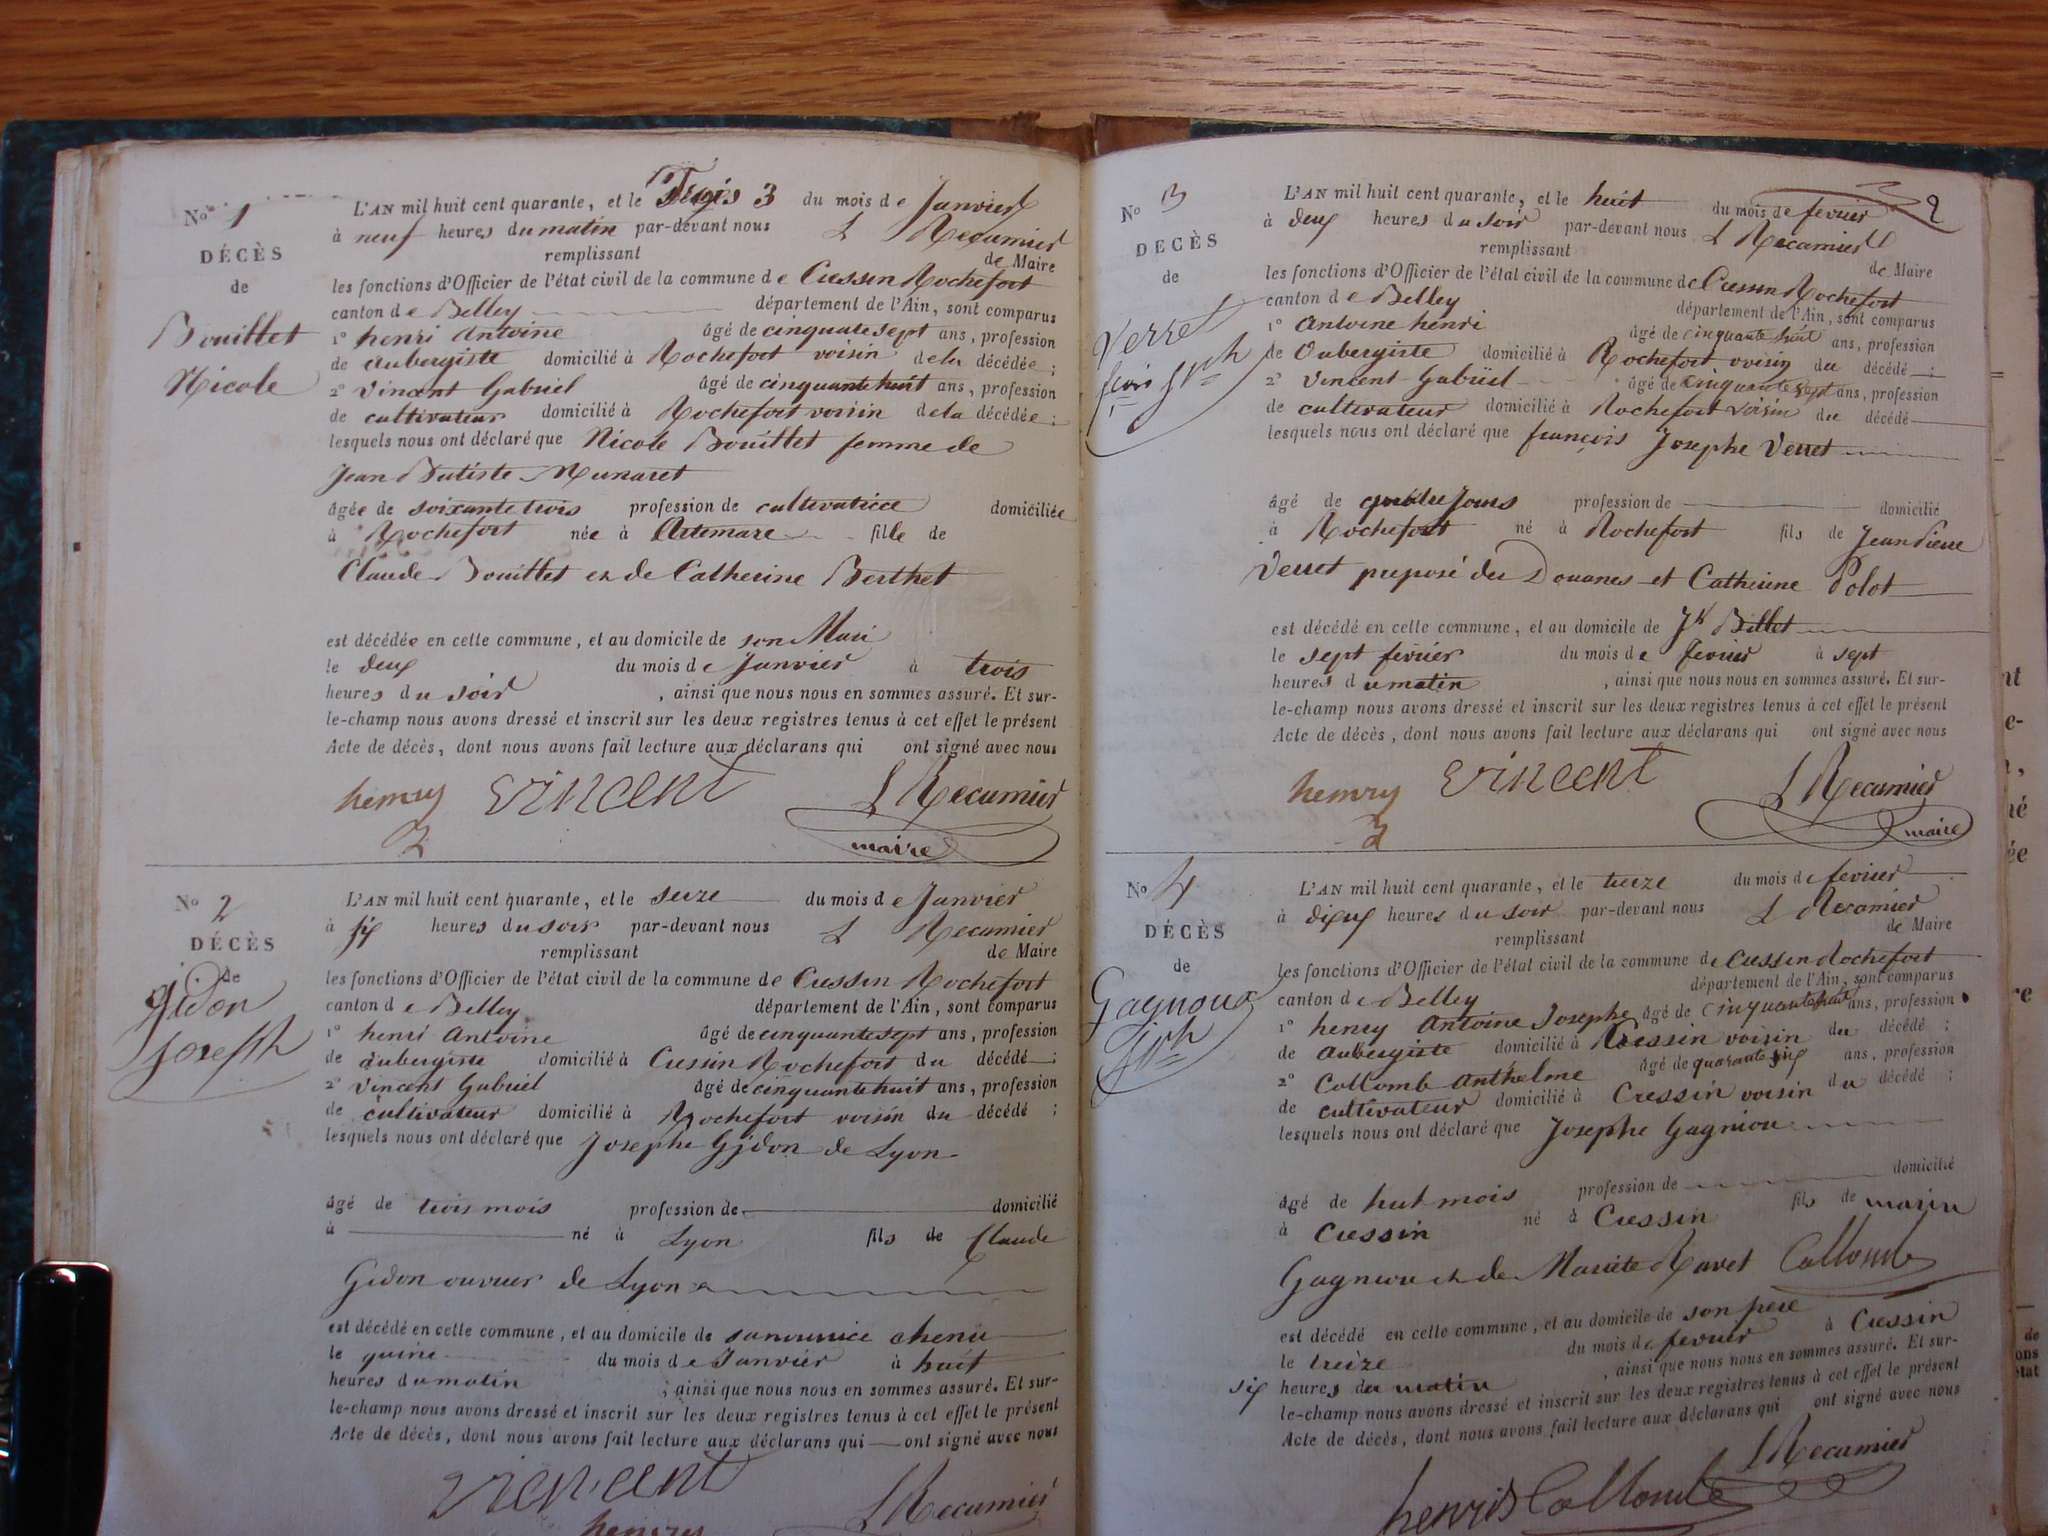 No 1
DÉCÈS
de
Bouillet
Nicole
L'AN mil huit cent quarante, et le Trois 3 du mois de Janvier
à neuf heures du matin par-devant nous L Recamier
remplissant de Maire
les fonctions d'Officier de l'état civil de la commune de Cressin Rochefort
canton de Belley département de l'Ain, sont comparus
1° henri Antoine âgé de cinquante sept ans, profession
de aubergiste domicilié à Rochefort voisin de la décédée;
2° Vincent Gabriel âgé de cinquante huit ans, profession
de cultivateur domicilié à Rochefort voisin de la décédée;
lesquels nous ont déclaré que Nicole Bouillet femme de
Jean Batiste Munaret
âgée de soixante trois profession de cultivatrice domiciliée
à Rochefort née à Artemare fille de
Claude Bouillet et de Catherine Berthet
est décédée en cette commune, et au domicile de son Mari
le deux du mois de Janvier à trois
heures du soir, ainsi que nous nous en sommes assuré. Et sur-
le-champ nous avons dressé et inscrit sur les deux registres tenus à cet effet le présent
Acte de décès, dont nous avons fait lecture aux déclarans qui ont signé avec nous
henry vincent L Recamier
maire
No 2
DÉCÈS
de
Gidon
Joseph
L'AN mil huit cent quarante, et le seize du mois de Janvier
à six heures du soir par-devant nous L Recamier
remplissant de Maire
les fonctions d'Officier de l'état civil de la commune de Cressin Rochefort
canton de Belley département de l'Ain, sont comparus
1° henri Antoine âgé de cinquante sept ans, profession
de aubergiste domicilié à Cressin Rochefort du décédé;
2° Vincent Gabriel âgé de cinquante huit ans, profession
de cultivateur domicilié à Rochefort voisin du décédé;
lesquels nous ont déclaré que Josephe Gidon de Lyon
âgé de trois mois profession de domicilié
à né à Lyon fils de Claude
Gidon ouvrier de Lyon
est décédé en cette commune, et au domicile de sa nourrice chenu
le quinze du mois de Janvier à huit
heures du matin; ainsi que nous nous en sommes assuré. Et sur-
le-champ nous avons dressé et inscrit sur les deux registres tenus à cet effet le présent
Acte de décès, dont nous avons fait lecture aux déclarans qui ont signé avec nous
vincent L Recamier
henry
2
No 3
DÉCÈS
de
Verret
fçois Jph
L'AN mil huit cent quarante, et le huit du mois de fevrier
à deux heures du soir par-devant nous L Recamier
remplissant de Maire
les fonctions d'Officier de l'état civil de la commune de Cressin Rochefort
canton de Belley département de l'Ain, sont comparus
1° Antoine henri âgé de cinquante huit ans, profession
de Aubergiste domicilié à Rochefort voisin du décédé;
2° Vincent Gabriel âgé de cinquante sept ans, profession
de cultivateur domicilié à Rochefort voisin du décédé
lesquels nous ont déclaré que françois Josephe Verret
âgé de quatre Jours profession de domicilié
à Rochefort né à Rochefort fils de Jean Pierre
Verret preposé des Douanes et Catherine Polot
est décédé en cette commune, et au domicile de Jh Billet
le sept fevrier du mois de fevrier à sept
heures du matin, ainsi que nous nous en sommes assuré. Et sur-
le-champ nous avons dressé et inscrit sur les deux registres tenus à cet effet le présent
Acte de décès, dont nous avons fait lecture aux déclarans qui ont signé avec nous
henry vincent L Recamier
maire
No 4
DÉCÈS
de
Gagnoux
Jph
L'AN mil huit cent quarante, et le treize du mois de fevrier
à dixeux heures du soir par-devant nous L Recamier
remplissant de Maire
les fonctions d'Officier de l'état civil de la commune de Cressin Rochefort
canton de Belley département de l'Ain, sont comparus
1° henry Antoine Josephe âgé de cinquante huit ans, profession
de Aubergiste domicilié à Cressin voisin du décédé;
2° Collomb Anthelme âgé de quarante six ans, profession
de cultivateur domicilié à Cressin voisin du décédé;
lesquels nous ont déclaré que Josephe Gagniou
âgé de huit mois profession de domicilié
à Cressin né à Cressin fils de marin
Gagniou et de Mariete Ravet Collomb
est décédé en cette commune, et au domicile de son pere
le treize du mois de fevrier à Cressin
six heures du matin, ainsi que nous nous en sommes assuré. Et sur-
le-champ nous avons dressé et inscrit sur les deux registres tenus à cet effet le présent
Acte de décès, dont nous avons fait lecture aux déclarans qui ont signé avec nous
L Recamier
henris Collomb